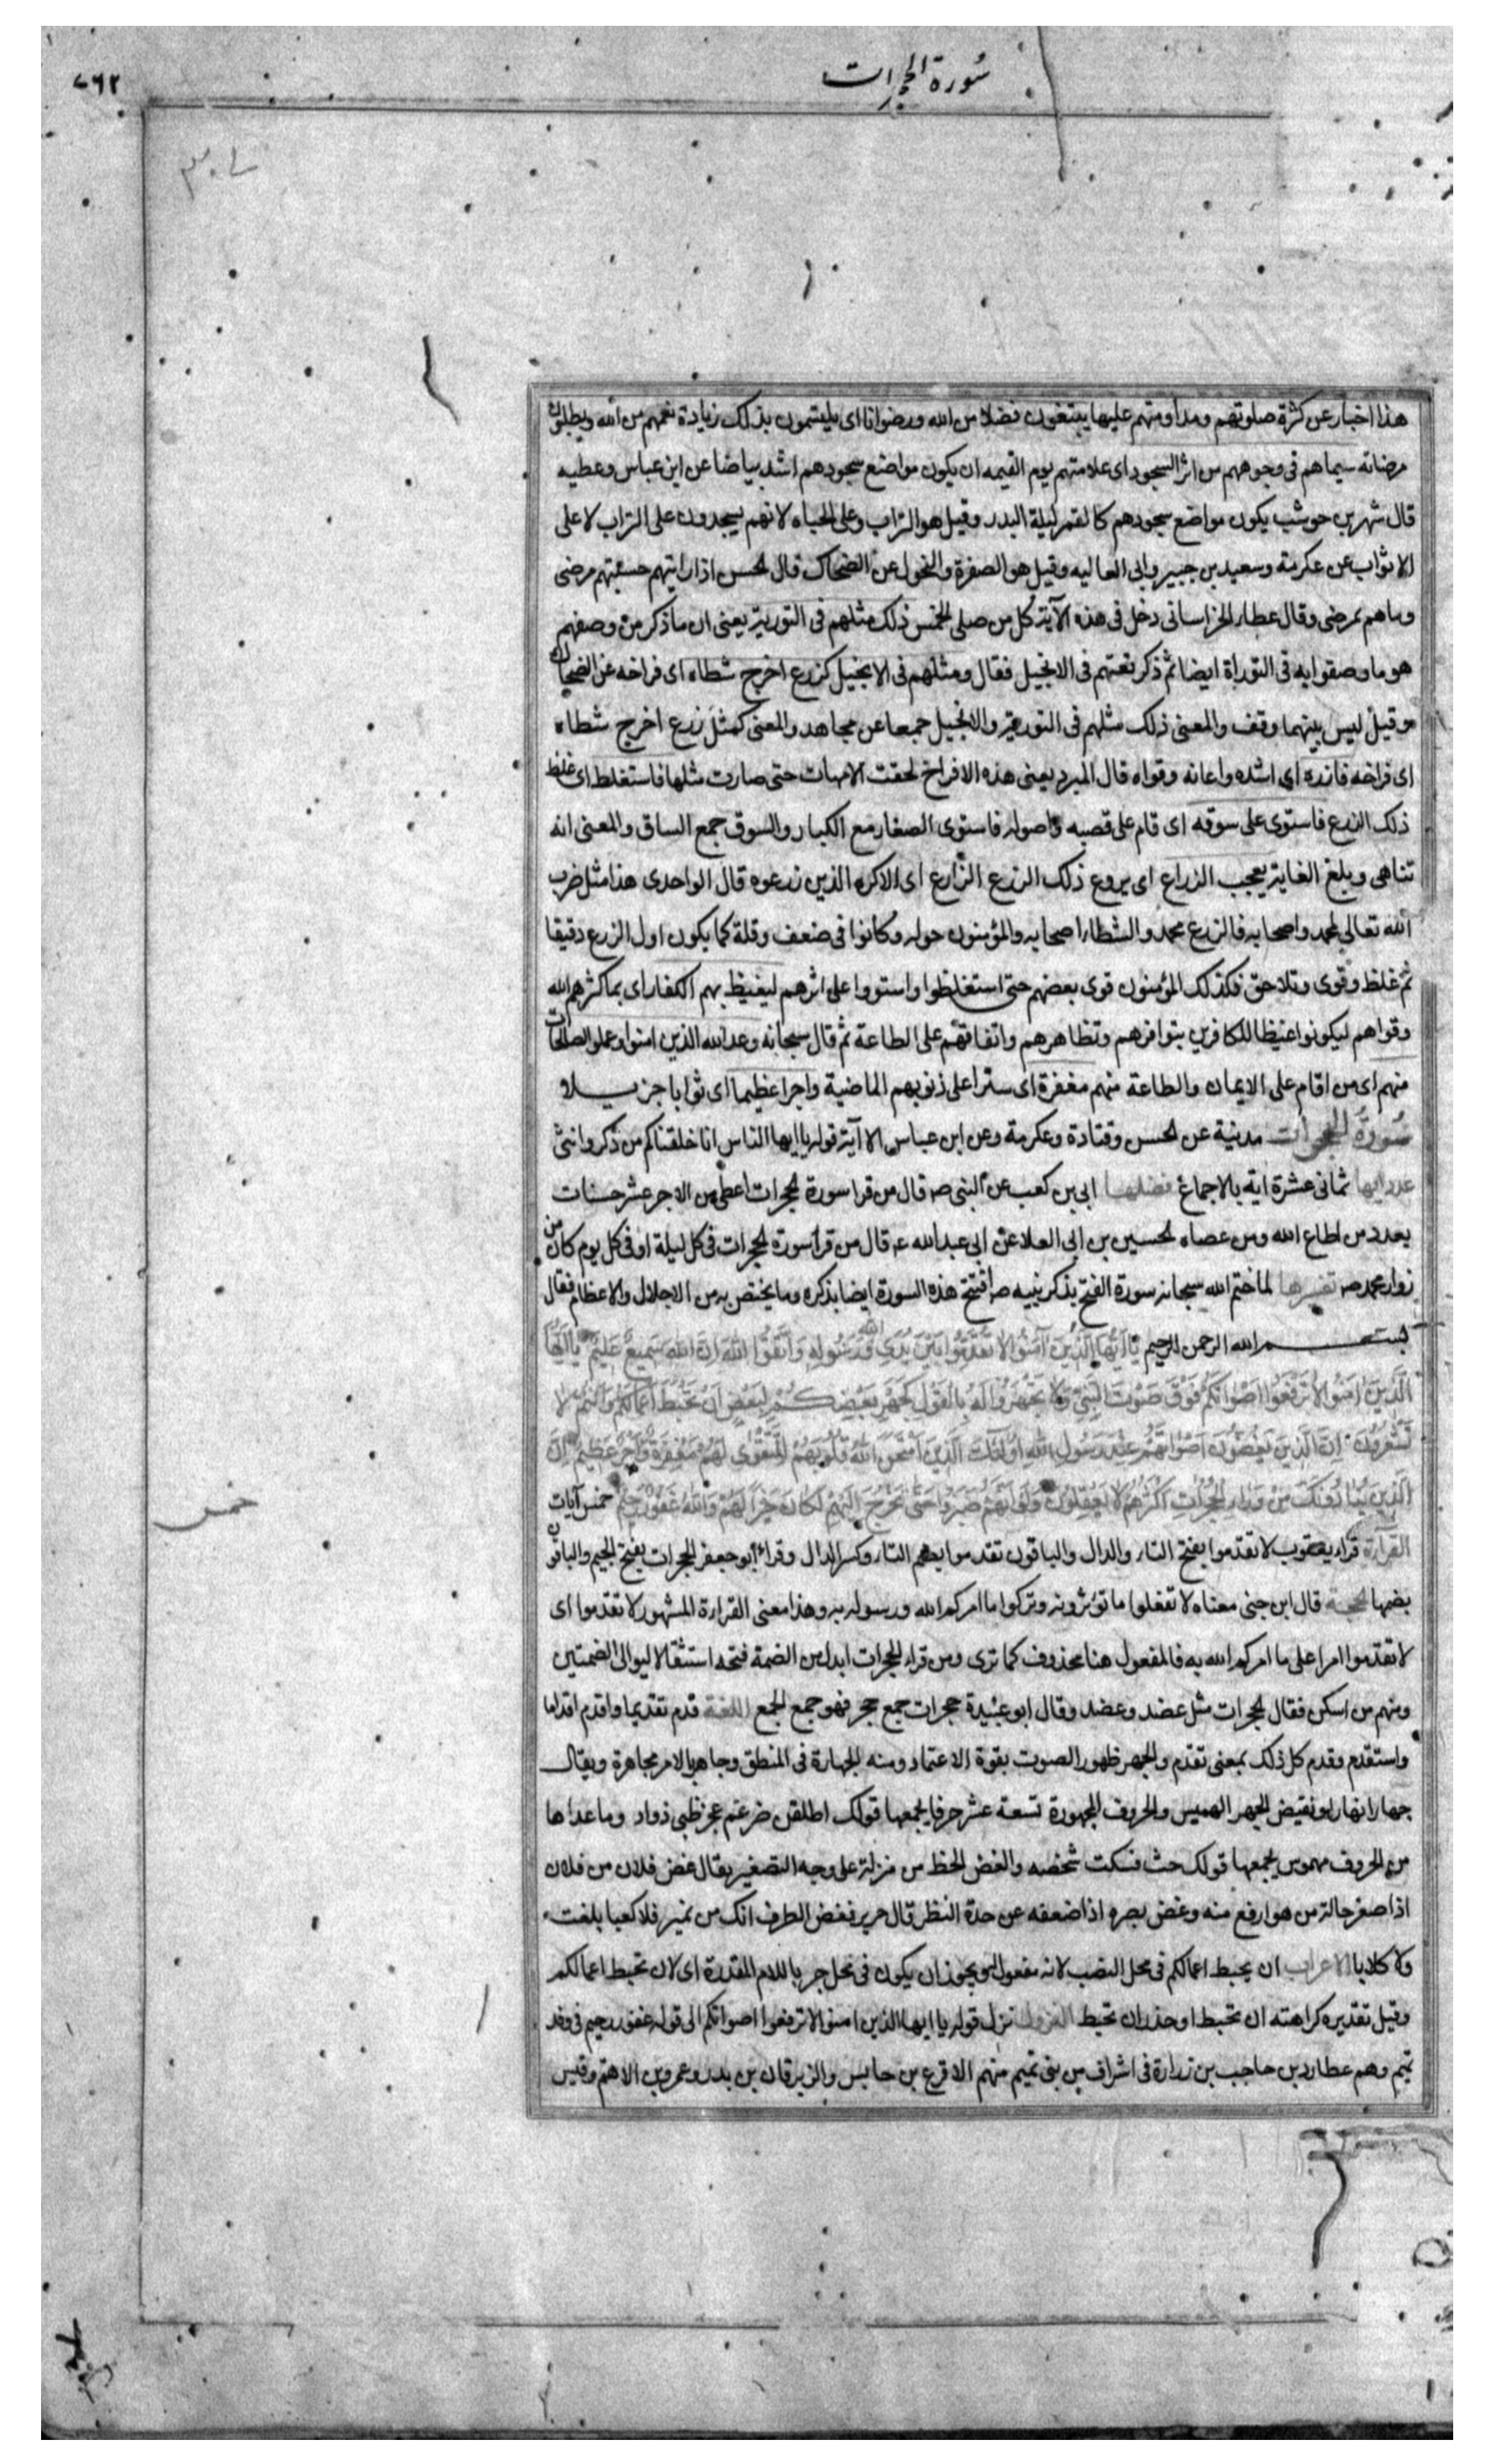 سورة الحجرات
٧٦٢
هذا اخبار عن كثرة صلوتهم ومداومتهم عليها يبتغون فضلا من الله ورضوانا اى يلتمسون بذلك زيادة نعمهم من الله ويطلبون
مرضاته سيماهم فى وجوههم من اثر السجود اى علامتهم يوم القيمه ان يكون مواضع سجودهم اشد بياضا عن ابن عباس وعطيه
قال شهر بن حوشب يكون مواضع سجودهم كالقمر ليلة البدر وقيل هو التراب وعلى الجباه لانهم يسجدون على التراب لا على
الاثواب عن عكرمة وسعيد بن جبير وابى العاليه وقيل هو الصفرة والنحول عن الضحاك قال الحسن اذا رايتهم حسبتهم مرضى
وما هم بمرضى وقال عطاء الخراسانى دخل فى هذه الآية كل من صلى الخمس ذلك مثلهم فى التورية يعنى ان ما ذكر من وصفهم
هو ما وصفوا به فى التوراة ايضا ثم ذكر نعتهم فى الانجيل فقال ومثلهم فى الانجيل كزرع اخرج شطاه اى فراخه عن الضحاك
وقيل ليس بينهما وقف والمعنى ذلك مثلهم فى التورية والانجيل جميعا عن مجاهد والمعنى كمثل زرع اخرج شطاه
اى فراخه فازره اى اشده واعانه وقواه قال المبرد يعنى هذه الافراخ لحقت الامهات حتى صارت مثلها فاستغلظ اى غلظ
ذلك الزرع فاستوى على سوقه اى قام على قصبه واصوله فاستوى الصغار مع الكبار والسوق جمع الساق والمعنى انه
تناهى وبلغ الغاية يعجب الزراع اى يروع ذلك الزرع الزارع اى الاكره الذين زرعوه قال الواحدى هذا مثل ضرب
الله تعالى لمحمد واصحابه فالزرع محمد والشطا اصحابه والمؤمنون حوله وكانوا فى ضعف وقلة كما يكون اول الزرع دقيقا
ثم غلظ وقوى وتلاحق فكذلك المؤمنون قوى بعضهم حتى استغلظوا واستووا على اثرهم ليغيظ بهم الكفار اى بما كثرهم الله
وقواهم ليكونوا غيظا للكافرين بتوافرهم وتظاهرهم واتفاقهم على الطاعة ثم قال سبحانه وعد الله الذين امنوا وعملوا الصالحات
منهم اى من اقام على الايمان والطاعة منهم مغفرة اى سترا على ذنوبهم الماضية واجرا عظيما اى ثوابا جزيلا و
سورة الحجرات مدنية عن الحسن وقتادة وعكرمة وعن ابن عباس الا آية قوله يا ايها الناس انا خلقناكم من ذكر وانثى
عدد ايها ثمانى عشرة اية بالاجماع فضلها ابى بن كعب عن النبى صه قال من قرا سورة الحجرات اعطى من الاجر عشر حسنات
بعدد من اطاع الله ومن عصاه الحسين بن ابى العلا عن ابى عبد الله عه قال من قرأ سورة الحجرات فى كل ليلة او فى كل يوم كان من
زوار محمد صه تفسيرها لما ختم الله سبحانه سورة الفتح بذكر نبيه صه افتتح هذه السورة ايضا بذكره وما يختص به من الاجلال والاعظام فقال
بسم الله الرحمن الرحيم يَا اَيُّهَا الَّذِينَ آمَنُوا لا تُقَدِّمُوا بَيْنَ يَدَىِ اللهِ وَرَسُولِهِ وَاتَّقُوا اللهَ اِنَّ اللهَ سَمِيعٌ عَلِيمٌ يَا اَيُّهَا
الَّذِينَ امَنُوا لا تَرْفَعُوا اَصْوَاتَكُمْ فَوْقَ صَوْتِ النَّبِىِّ وَلا تَجْهَرُوا لَهُ بِالْقَوْلِ كَجَهْرِ بَعْضِكُمْ لِبَعْضٍ اَنْ تَحْبَطَ اَعْمَالُكُمْ وَاَنْتُمْ لا
تَشْعُرُونَ اِنَّ الَّذِينَ يَغُضُّونَ اَصْوَاتَهُمْ عِنْدَ رَسُولِ اللهِ اُولئِكَ الَّذِينَ امْتَحَنَ اللهُ قُلُوبَهُمْ لِلتَّقْوَى لَهُمْ مَغْفِرَةٌ وَاَجْرٌ عَظِيمٌ اِنَّ
الَّذِينَ يُنَادُونَكَ مِنْ وَرَاءِ الْحُجُرَاتِ اَكْثَرُهُمْ لا يَعْقِلُونَ وَلَوْ اَنَّهُمْ صَبَرُوا حَتَّى تَخْرُجَ اِلَيْهِمْ لَكَانَ خَيْرًا لَهُمْ وَاللهُ غَفُورٌ رَحِيمٌ خمس آيات
خمس
القرآءة قراء يعقوب لا تقدموا بفتح التاء والدال والباقون تقدموا بضم التاء وكسر الدال وقراء ابو جعفر الحجرات بفتح الجيم والباقون
بضمها الحجة قال ابن جنى معناه لا تفعلوا ما تؤثرونه وتتركوا ما امركم الله ورسوله به وهذا معنى القراءة المشهور لا تقدموا اى
لا تقدموا امرا على ما امركم الله به فالمفعول هنا محذوف كما ترى ومن قراء الحجرات ابدل من الضمة فتحه استثقالا لتوالى الضمتين
ومنهم من اسكن فقال الحجرات مثل عضد وعضد وقال ابو عبيدة حجرات جمع حجر فهو جمع الجمع اللغة قدم تقديما واقدم اقداما
واستقدم وقدم كل ذلك بمعنى تقدم والجهر ظهور الصوت بقوة الاعتماد ومنه الجهارة فى المنطق وجاهر بالامر مجاهرة ويقال
جهارا نهارا ونقيض الجهر الهمس والحروف المجهورة تسعة عشر حرفا يجمعها قولك اطلقن ضرغم عجز ظبى ذواد وما عداها
من الحروف مهموس يجمعها قولك حث فسكت شخصه والغض الحظ من منزلة على وجه التصغير يقال غض فلان من فلان
اذا صغر حالة من هو ارفع منه وغض بصره اذا ضعفه عن حدة النظر قال جرير فغض الطرف انك من نمير فلا كعبا بلغت
ولا كلابا الاعراب ان يحبط اعمالكم فى محل النصب لانه مفعول له ويجوز ان يكون فى محل جر باللام المقدرة اى لان تحبط اعمالكم
وقيل تقديره كراهته ان تحبط او حذر ان تحبط النزول نزل قوله يا ايها الذين امنوا لا ترفعوا اصواتكم الى قوله غفور رحيم فى وفد
تميم وهم عطارد بن حاجب بن زرارة فى اشراف من بنى تميم منهم الاقرع بن حابس والزبرقان بن بدر وعمرو بن الاهتم وقيس